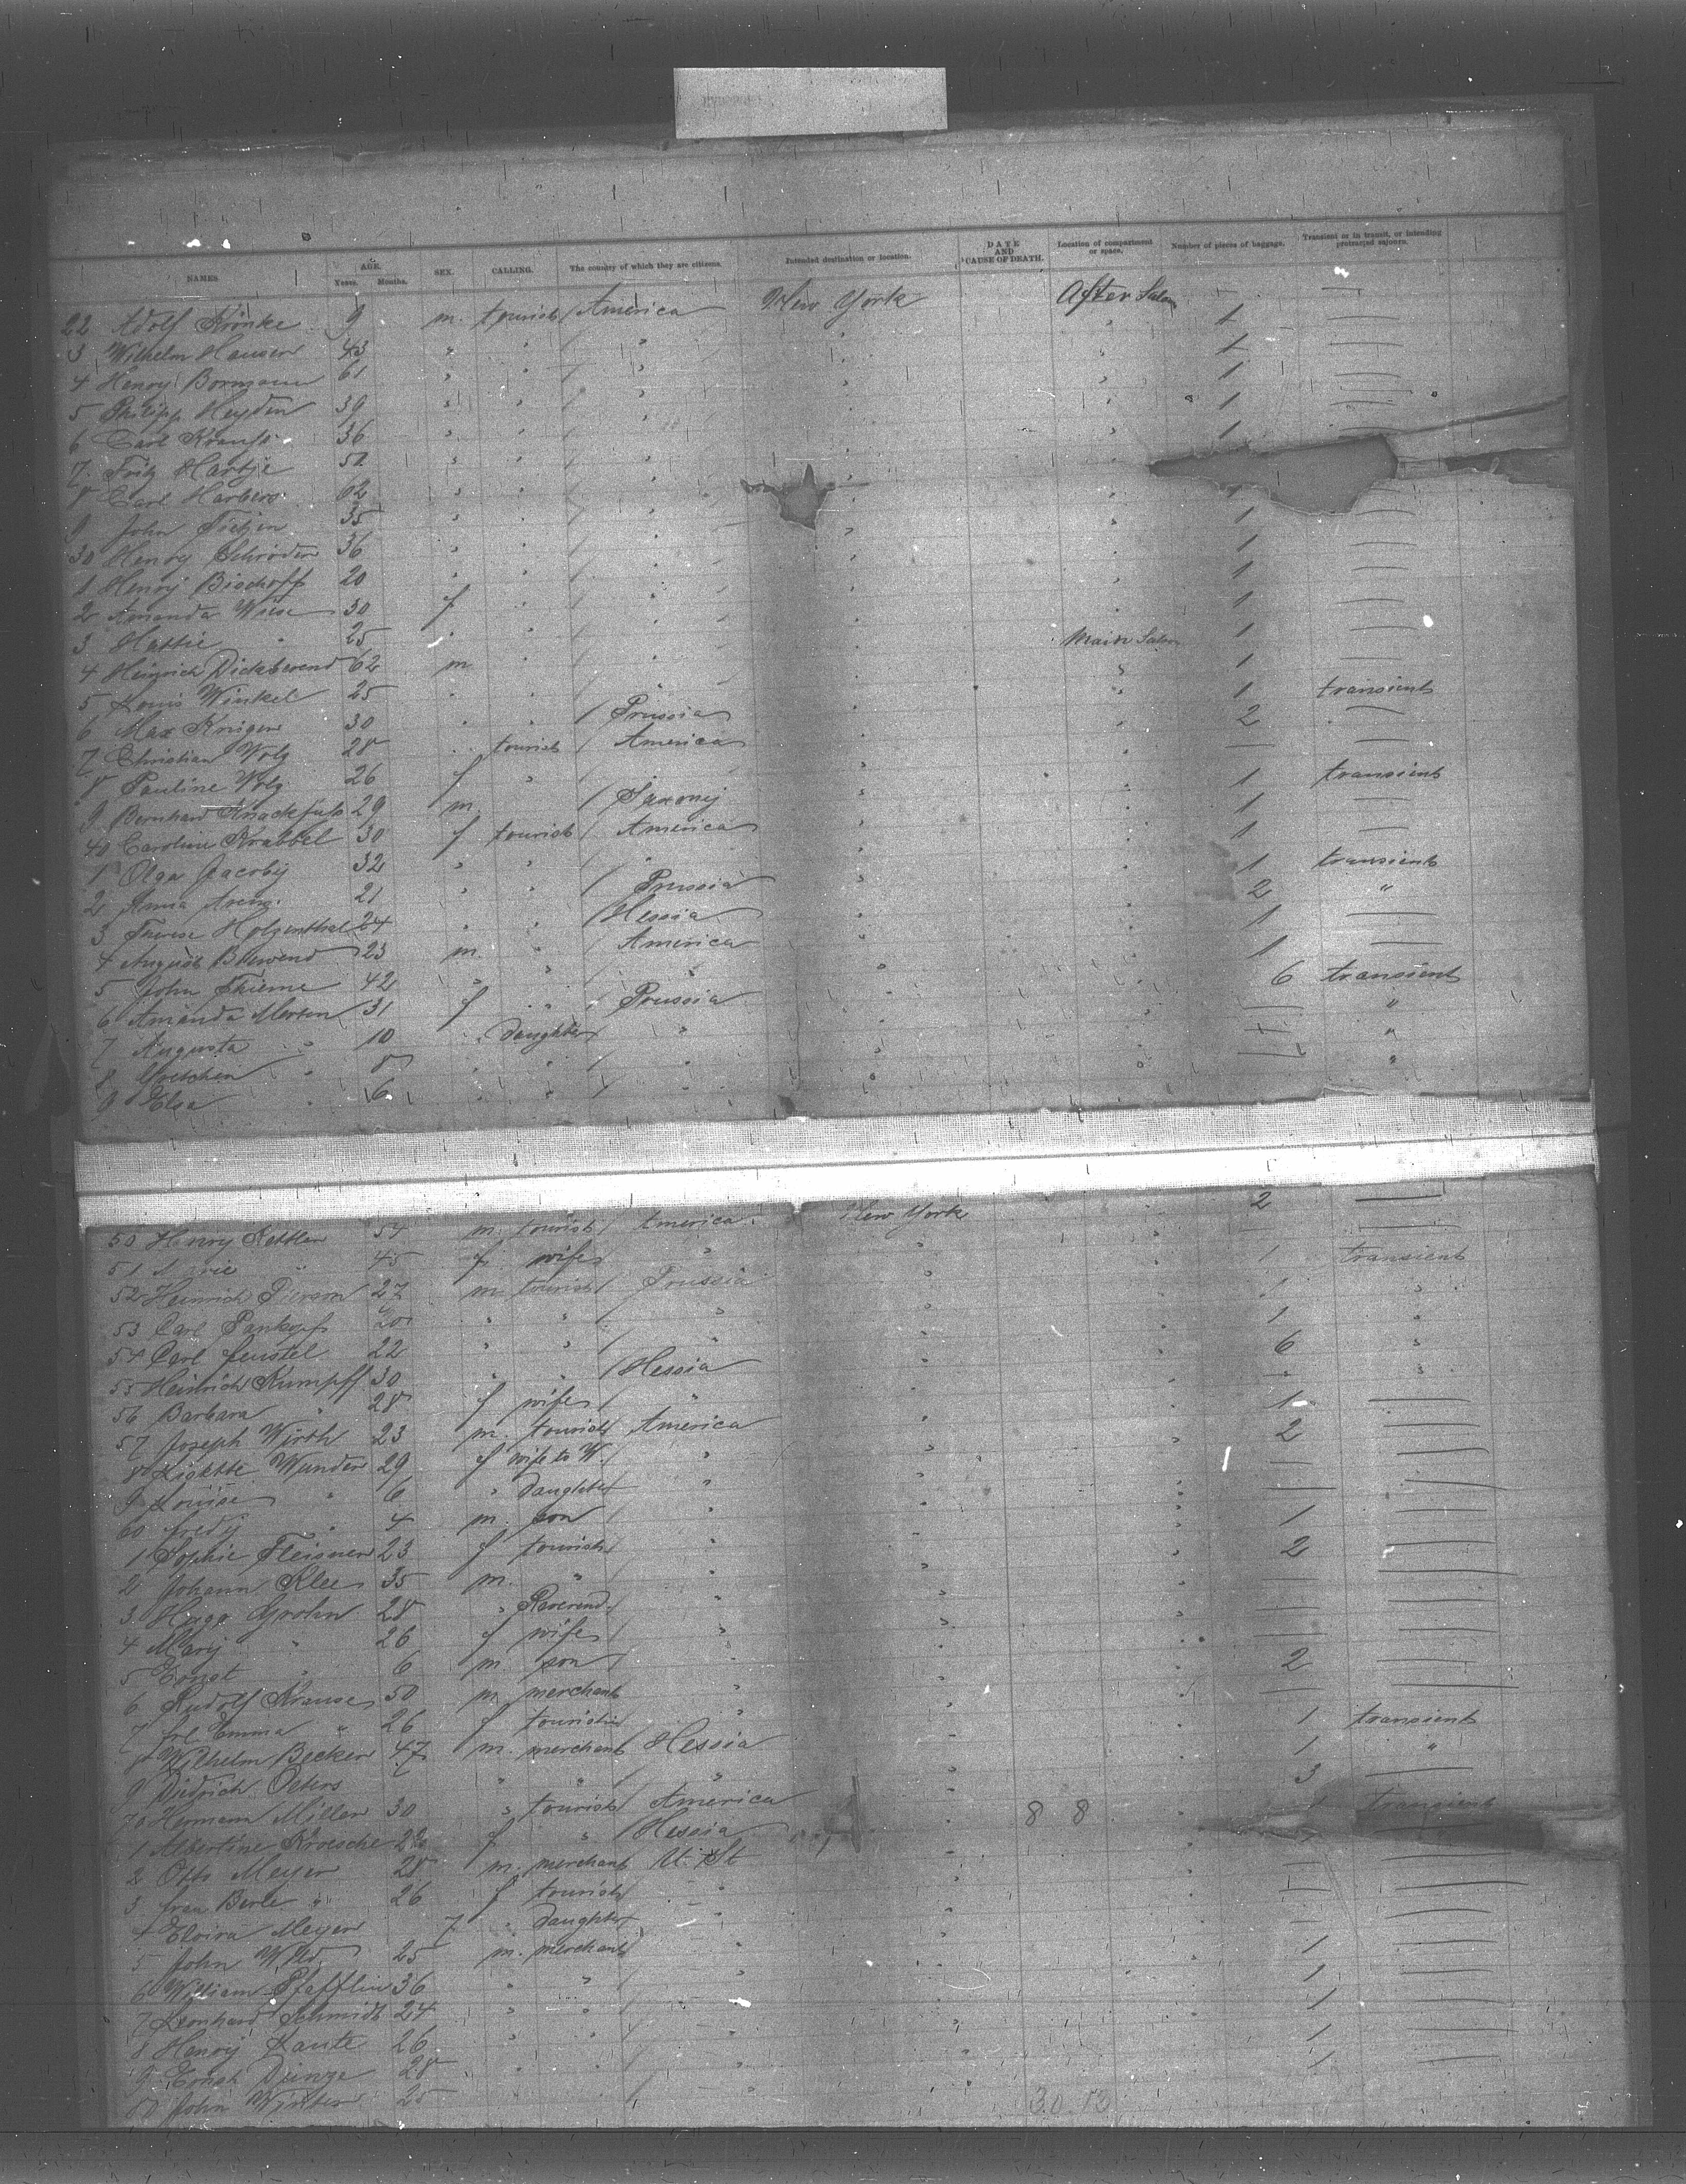 NAMES. AGE. Years. Months. SEX. CALLING. The country of which they are citizens. Intended destination or location. DATE AND CAUSE OF DEATH. Location of compartment or space. Number of pieces of baggage. Transient or in transit, or intending protracted sojourn.
22 Adolf Krönke 9 m. tourist / America New York After Saloon —
3 Wilhelm Hansen 43 " " / " " " 1 —
4 Henry Bormann 61 " " / " " " 1 —
5 Philipp Heyden 39 " " / " " " 1 —
6 Carl Krauss 36 " " / " " " 1 —
7 Fritz Hartje 51 " " / " " " 1
8 Carl Harbers 62 " " / " "
9 John Tietjen 35 " " / " " " 1 —
30 Henry Schröder 36 " " / " " " 1 —
1 Henry Bischoff 20 " " / " " " 1 —
2 Amanda Wiese 30 f " / " " " 1 —
3 Hattie " 25 " " / " " 1 —
4 Heinrich Dickberend 62 m. / " " Main Saloon 1 —
5 Louis Winkel 25 " " / " " " 1 —
6 Max Krüger 30 " " / Prussia " " 1 transient
7 Christian Wolz 28 " tourist / America " " 2 —
8 Pauline Wolz 26 f " " —
9 Bernhard Knackfuss 29 m. / Saxony " " 1 transient
40 Caroline Krabbel 30 f tourist / America " " 1 —
1 Olga Jacoby 32 " " / " " " 1 —
2 Anna 21 " " / Prussia " " 1 transient
3 Therese Holzenthal 24 " " / Hessia " " 2 "
4 August 23 m. " / America " " 1 —
5 John Thieme 42 " " / " " " 1 —
6 Amanda Merten 31 f " / Prussia " " 6 transient
7 Augusta " 10 " Daughter / " " " — "
8 Gretchen " 8 " " / " " " — "
9 Elsa " 6 " " / " " " — "
50 Henry Kettler 54 m. tourist / America New York " 2 —
51 Marie " 45 f. wife / " " " —
52 Heinrich Pierson 27 m. tourist / Prussia " " 1 transient
53 Carl Pankopf 20 " " / " " " 1 "
54 Carl Jeustel 22 " " / " " " 1 "
55 Heinrich Rumpff 30 " " / Hessia " " 6 "
56 Barbara " 28 f wife / " " " "
57 Joseph Wirth 23 m. tourist / America " " 1 —
8 Wunder 29 f wife to W. / " " " 2 —
9 Louise " 6 " Daughter / " " " —
60 Fredy " 4 m. son / " " " —
1 Sophie Fleisner 23 f tourist / " " " 1 —
2 Johann Klee 35 m. " / " " " 2 —
3 Hugo Grohn 28 " Reverend / " " " —
4 Mary " 26 f wife / " " " —
5 Ernst " 6 m. son / " " " —
6 Rudolf Krause 50 m. merchant " " " 2 —
7 Frl Emma " 26 f tourist / " " " —
8 Wilhelm Becker 47 m. merchant / Hessia " " 1 transient
9 Diedrich Peters " " / " " " 1 "
70 Hermann Miller 30 " tourist / America " " 3 —
1 Albertine Kroesche 22 f " / Hessia " 8 8 " 1 transient
2 Otto Meyer 28 m. merchant / U. St " "
3 Frau Berle " 26 f tourist / " " " —
4 Elvira Meyer 7 " Daughter / " " " —
5 John 25 m. merchant / " " " —
6 William Pfafflin 36 " " / " " " 1 —
7 Leonhard Schmidt 24 " " / " " " 1 —
8 Henry Kaute 26 " " / " " " 1 —
9 Ernst 28 " " / " " " 1 —
80 John Winter 25 " " / " " 30.12 1 —